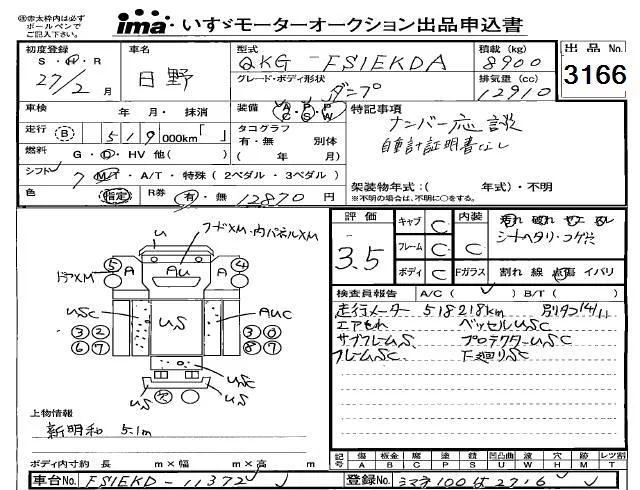 ㊟赤太枠内は必ず
ボールペンで
ご記入下さい。
ima いすゞモーターオークション出品申込書
初度登録 車名 型式 積載 (kg) 出品No.
S・H・R 日野 QKG-FS1EKDA 8900 3166
27/2月 グレード・ボディ形状 排気量 (cc)
ダンプ 12910
車検 年 月・抹消 装備 A/C P/S P/W 特記事項
走行 B 519,000km「 」 タコグラフ ナンバー応談
有・無 別体 自重計証明書なし
燃料 G・D・HV 他( ) ( 年 月)
シフト 7 MT・A/T・特殊 (2ペダル・3ペダル) 架装物年式:( 年式)・不明
色 指定 R券 有・無 12870円 ※不明の場合は、不明に○をする。
評価 キャブ C 内装 汚れ 破れ
3.5 フレーム C C シートヘタリ・コゲ穴
ボディ C Fガラス 割れ 線 点傷 イバリ
フードXM・内パネルXM
U
⑤ A AU A ④
ドアXM
USC US AUC
③ ② ③
⑥ ⑦ ⑧ ⑦
USC
US US
検査員報告 A/C( ) B/T( )
走行メーター 518218km 別タコ14/11
エアもれ ベッセルUSC
サブフレームS プロテクターUSC
フレームSC 下廻りSC
上物情報
新明和 5.1m
ボディ内寸約 長 m×幅 m×高 m
記号 傷 A 板金 B 腐 C 塗 P 錆 S 凹凸曲 U 波 W 穴 H 跡 M レツ割 T
車台No. FS1EKD-11372
登録No. シマネ100は2716